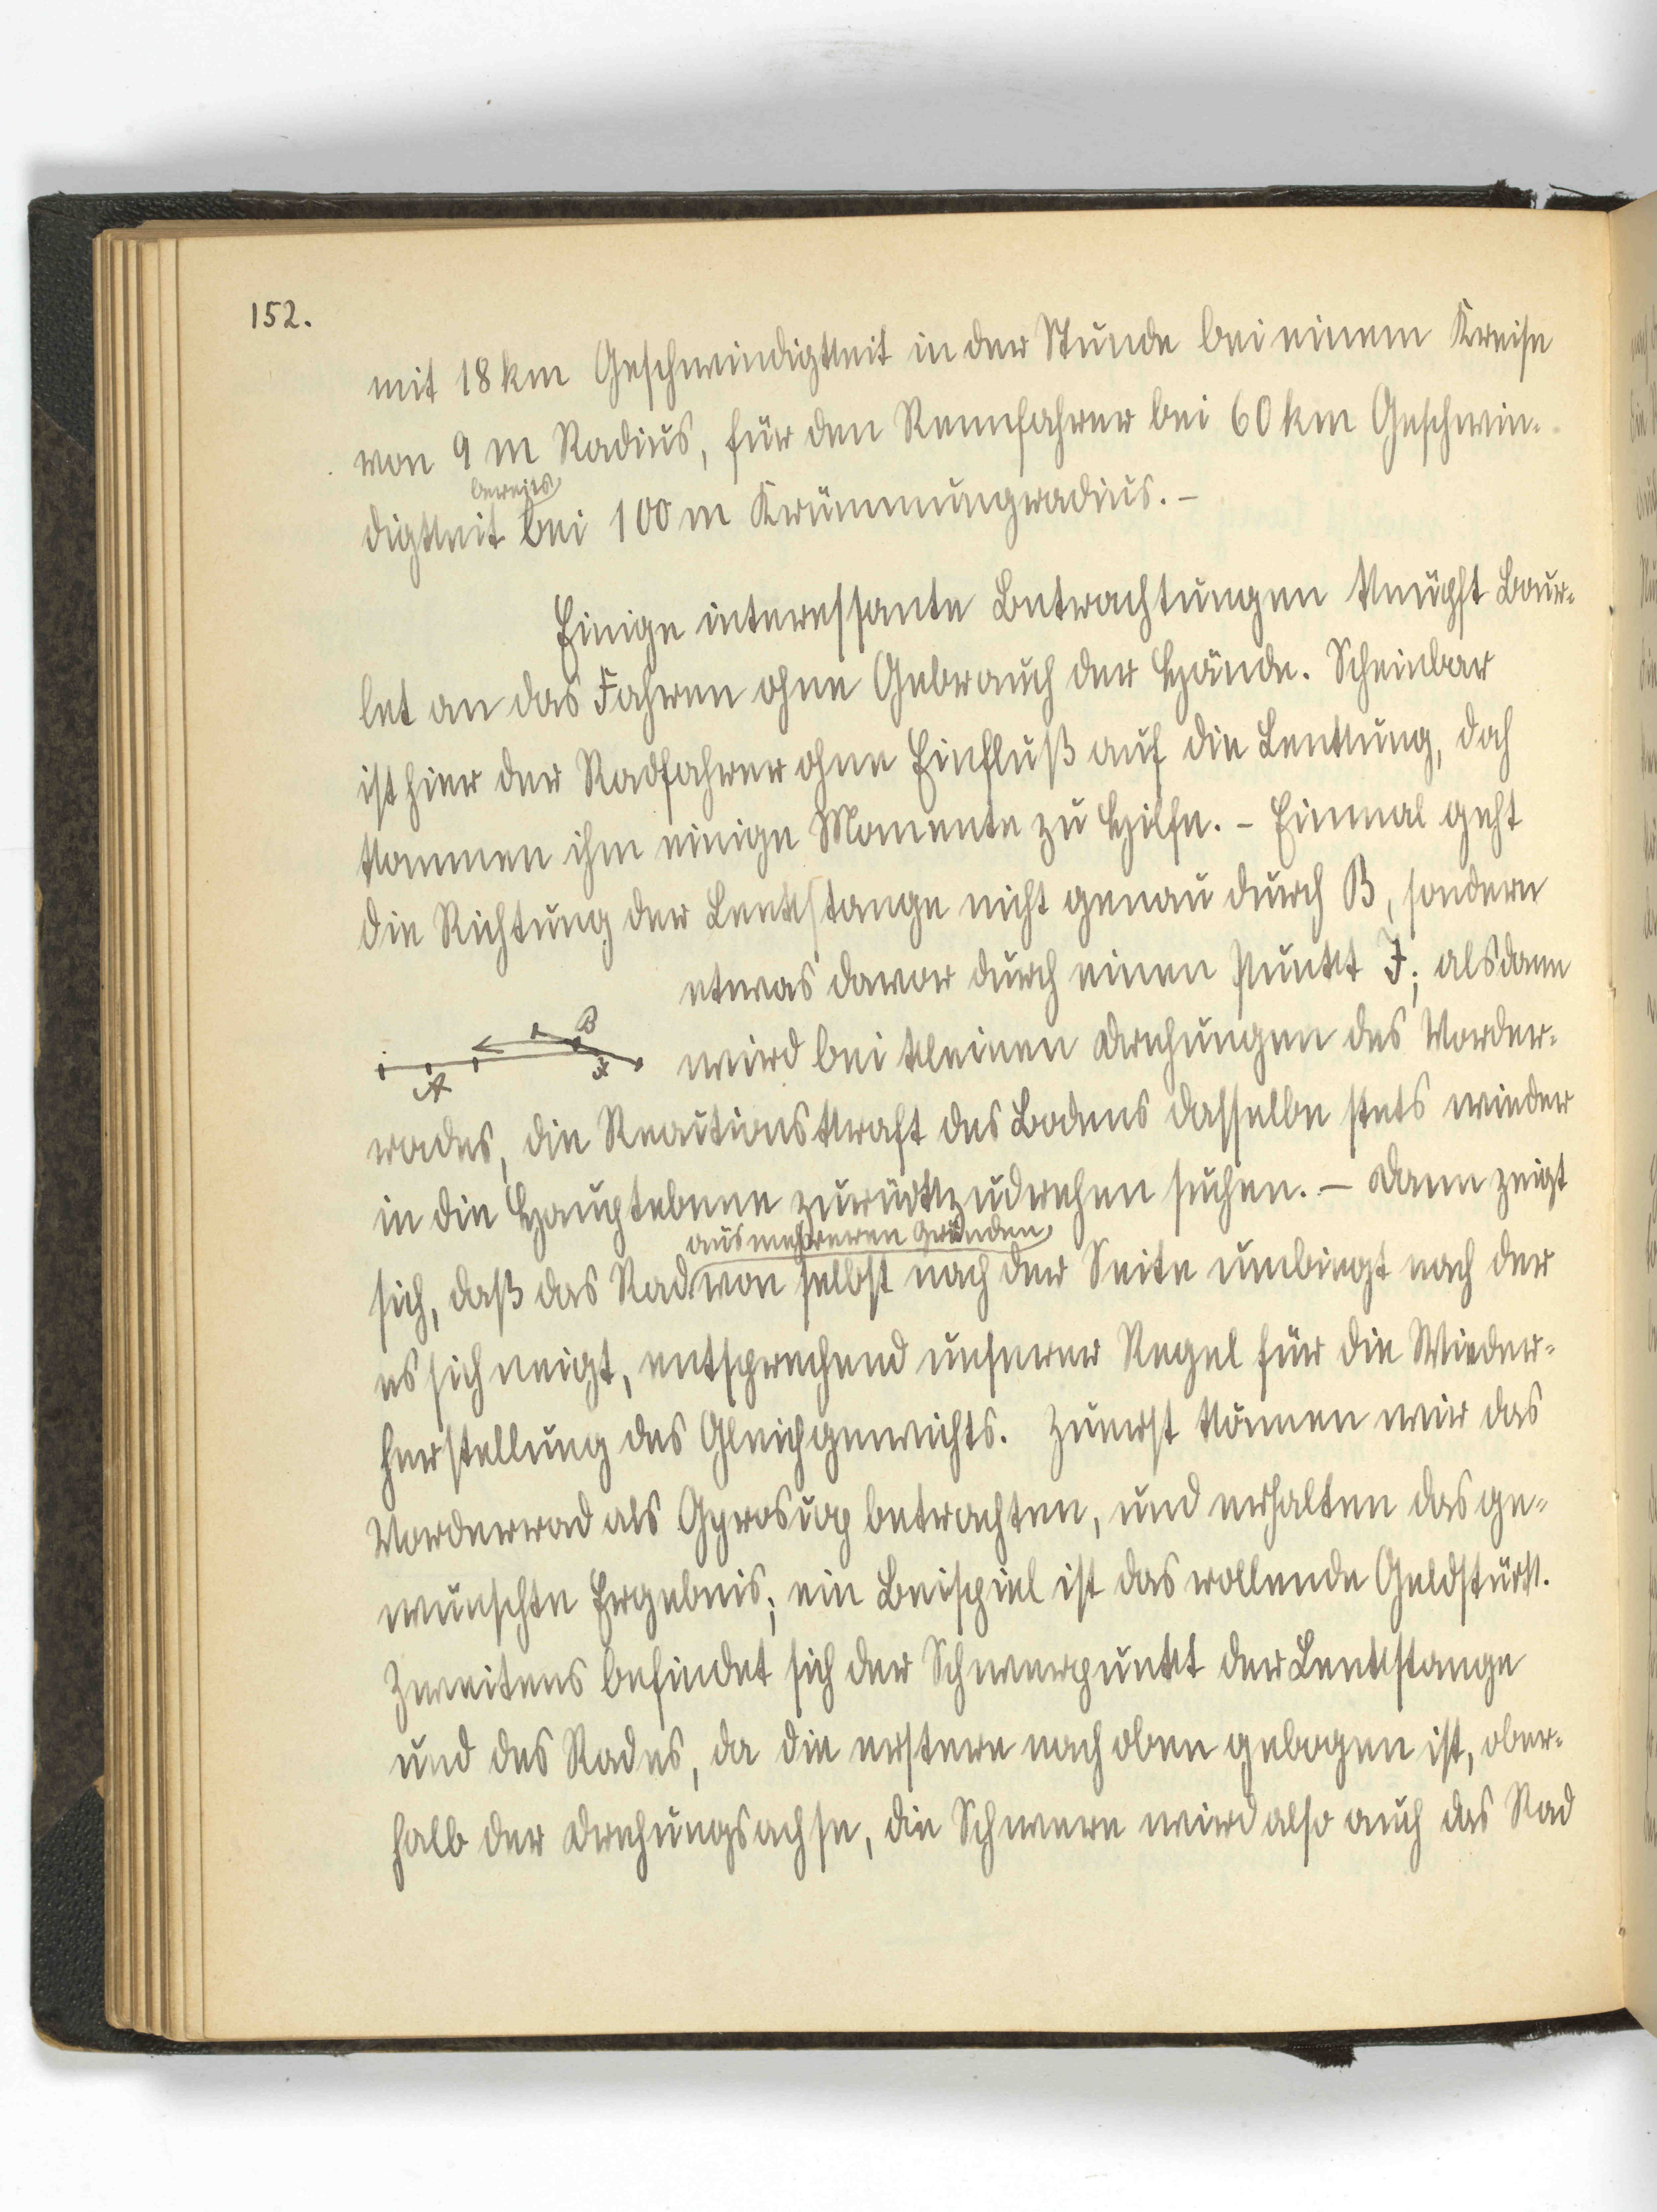 152.
mit 18 km Geschwindigkeit in der Stunde bei einem Kreise
von 9 m Radius, für den Rennfahrer bei 60 km Geschwin-
bereits
digkeit bei 100 m Krümmungsradius. –
Einige interessante Betrachtungen knüpft Bour-
let an das Fahren ohne Gebrauch der Hände. Scheinbar
ist hier der Radfahrer ohne Einfluß auf die Lenkung, doch
kommen ihm einige Momente zu Hilfe. – Einmal geht
die Richtung der Lenkstange nicht genau durch B, sondern
etwas davor durch einen Punkt I; alsdann
B
wird bei kleinen Drehungen des Vorder-
A
I
rades, die Reactionskraft des Bodens dasselbe stets wieder
in die Hauptebene zurückzudrehen suchen. – Dann zeigt
aus mehreren Gründen
sich, daß das Rad von selbst nach der Seite umbiegt nach der
es sich neigt, entsprechend unserer Regel für die Wieder-
herstellung des Gleichgewichts. Zuerst können wir das
Vorderrad als Gyroscop betrachten, und erhalten das ge-
wünschte Ergebnis; ein Beispiel ist das rollende Geldstück.
Zweitens befindet sich der Schwerpunkt der Lenkstange
und des Rades, da die erstere nach oben gebogen ist, ober-
halb der Drehungsachse, die Schwere wird also auch das Rad